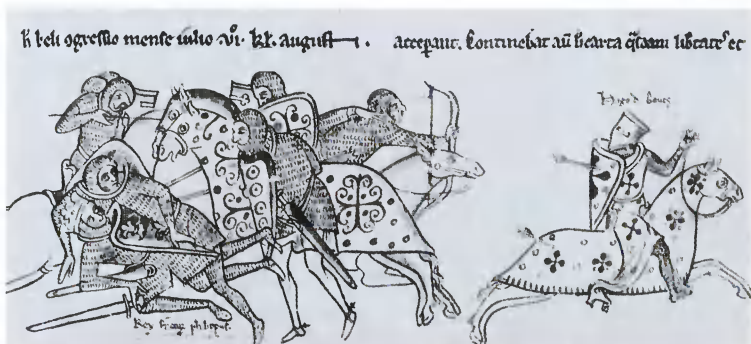 h beli ɔgressio mense iulio .vi. kl. august .
acceꝑant. Continebat aū h carta q̄sdam libtates et
Hugo d' boues
Rex franc ph̄ippus